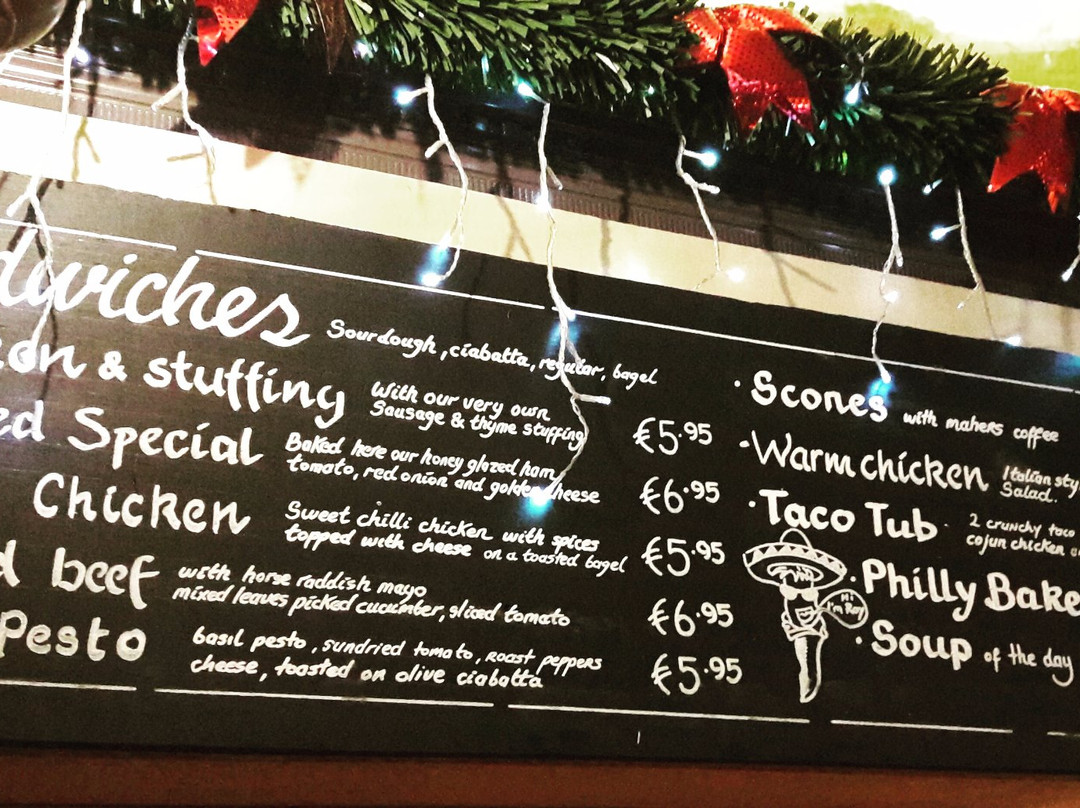 dwiches Sourdough, ciabatta, regular, bagel
& stuffing With our very own
Sausage & thyme stuffing €5.95
ed Special Baked here our honey glazed ham,
tomato, red onion and golden cheese €6.95
Chicken Sweet chilli chicken with spices
topped with cheese on a toasted bagel €5.95
d beef with horse raddish mayo
mixed leaves picked cucumber, sliced tomato €6.95
Pesto basil pesto, sundried tomato, roast peppers
cheese, toasted on olive ciabatta €5.95
· Scones with mahers coffee
· Warm chicken Italian sty
Salad.
· Taco Tub · 2 crunchy taco
cajun chicken
· Philly Bake
Hi
I'm Ray
· Soup of the day